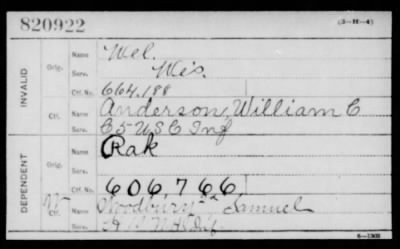 820922 (3-H-4)
INVALID
Orig. Name Wel.
Serv. Wis.
Ctf. No. 664,188
Ctf. Name Anderson, William C
Serv. C 5 U S C Inf
DEPENDENT
Orig. Name Rak
Serv.
Ctf. No. 606,766,
W Ctf. Name Woodbury Samuel
Serv.
6-1308